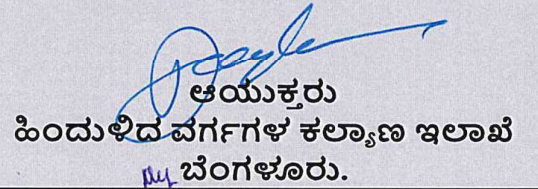 ಆಯುಕ್ತರು
ಹಿಂದುಳಿದ ವರ್ಗಗಳ ಕಲ್ಯಾಣ ಇಲಾಖೆ
ಬೆಂಗಳೂರು.